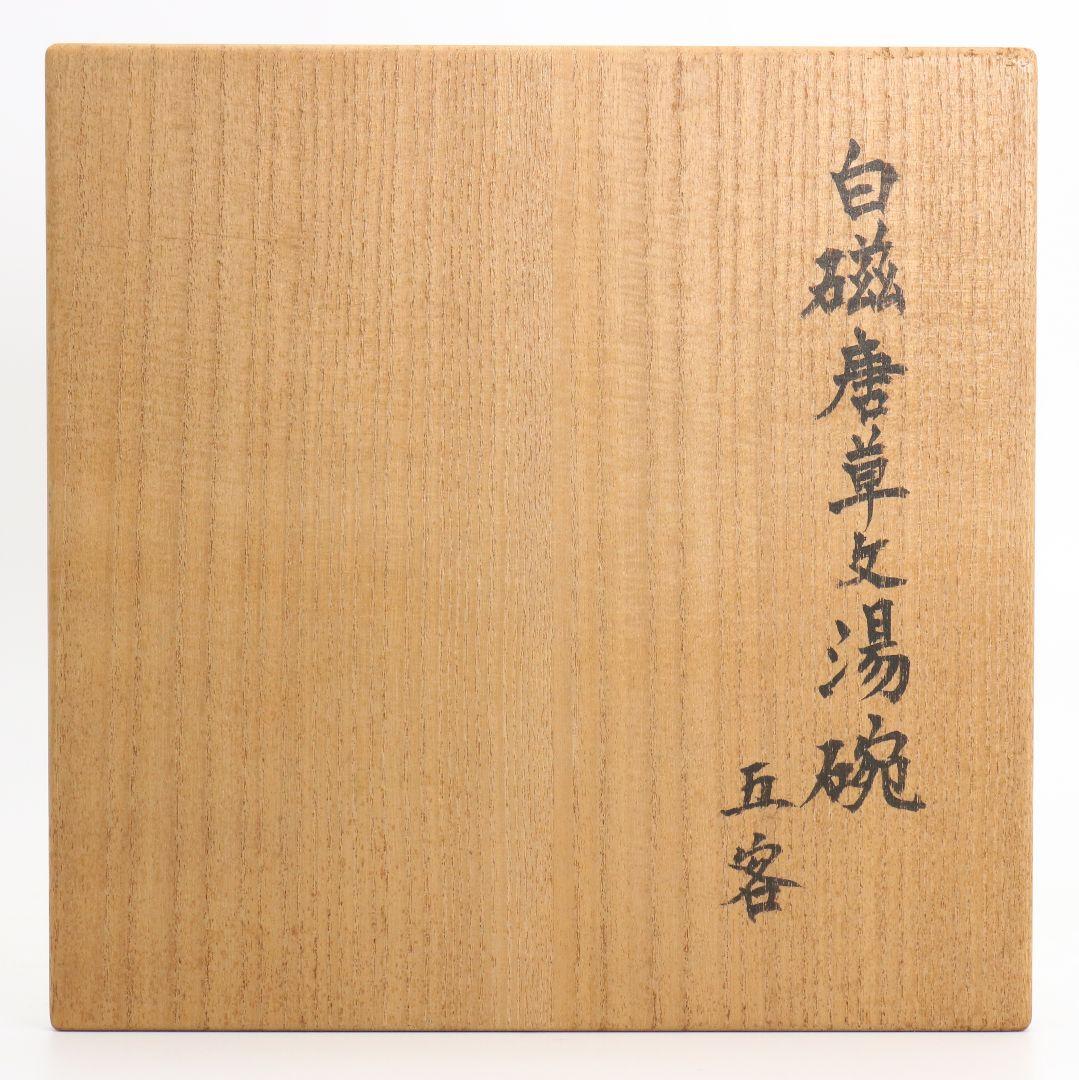 白磁唐草文湯碗
五客